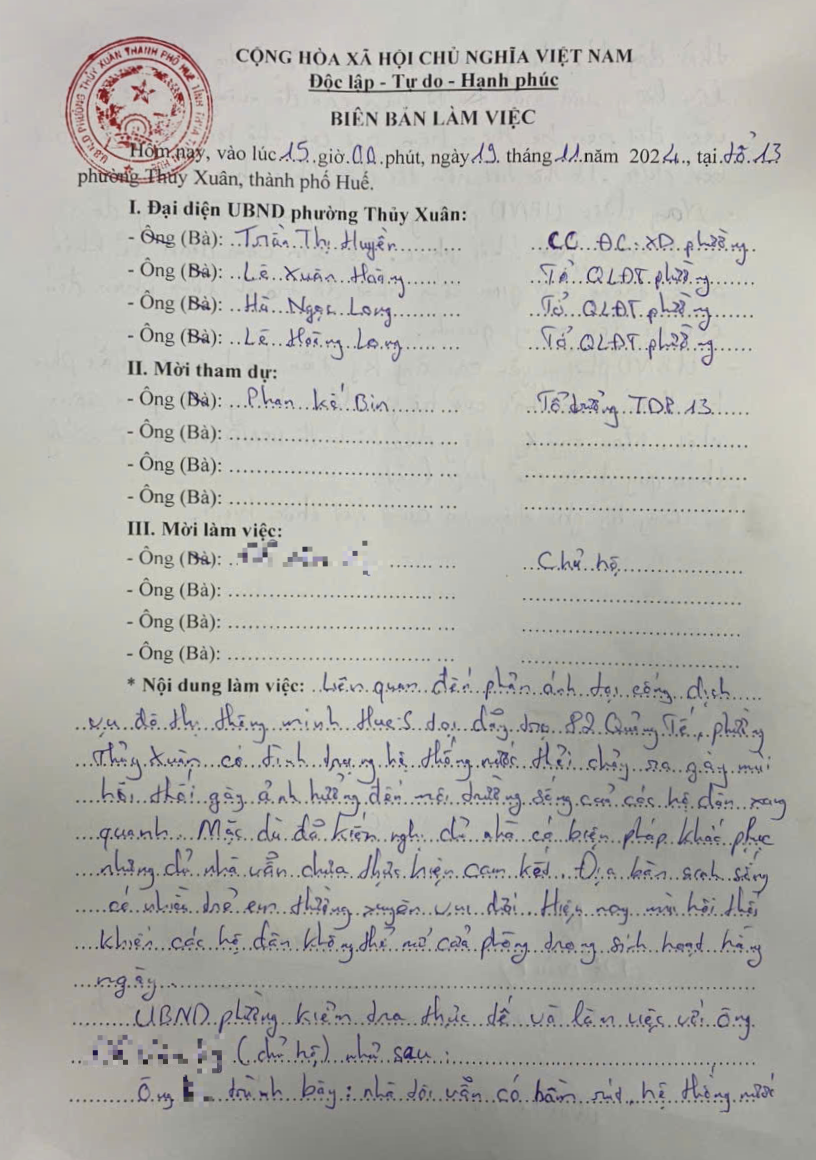 U.B.N.D PHƯỜNG THỦY XUÂN THÀNH PHỐ HUẾ TỈNH THỪA
CỘNG HÒA XÃ HỘI CHỦ NGHĨA VIỆT NAM
Độc lập - Tự do - Hạnh phúc
BIÊN BẢN LÀM VIỆC
Hôm nay, vào lúc 15 giờ 00 phút, ngày 19 tháng 11 năm 2024, tại tổ 13
phường Thủy Xuân, thành phố Huế.
I. Đại diện UBND phường Thủy Xuân:
- Ông (Bà): Trần Thị Huyền CC ĐC-XD phường
- Ông (Bà): Lê Xuân Hoàng Tổ QLĐT phường
- Ông (Bà): Hà Ngọc Long Tổ QLĐT phường
- Ông (Bà): Lê Hoàng Long Tổ QLĐT phường
II. Mời tham dự:
- Ông (Bà): Phan Kế Bin Tổ trưởng TDP 13
- Ông (Bà):
- Ông (Bà):
- Ông (Bà):
III. Mời làm việc:
- Ông (Bà): Chủ hộ
- Ông (Bà):
- Ông (Bà):
- Ông (Bà):
* Nội dung làm việc: Liên quan đến phản ánh tại cổng dịch
vụ đô thị thông minh Hue-S tại dãy trọ 82 Quảng Tế, phường
Thủy Xuân có tình trạng hệ thống nước thải chảy ra gây mùi
hôi thối gây ảnh hưởng đến môi trường sống của các hộ dân xung
quanh. Mặc dù đã kiến nghị chủ nhà có biện pháp khắc phục
nhưng chủ nhà vẫn chưa thực hiện cam kết. Địa bàn sinh sống
có nhiều trẻ em thường xuyên vui chơi. Hiện nay mùi hôi thối
khiến các hộ dân không thể mở cửa phòng trong sinh hoạt hằng
ngày.
UBND phường kiểm tra thực tế và làm việc với ông
(chủ hộ) như sau:
Ông trình bày: nhà tôi vẫn có hầm rút, hệ thống nước